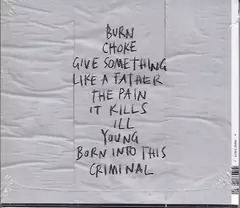 BURN
CHOKE
GIVE SOMETHING
LIKE A FATHER
THE PAIN
IT KILLS
ILL
YOUNG
BORN INTO THIS
CRIMINAL